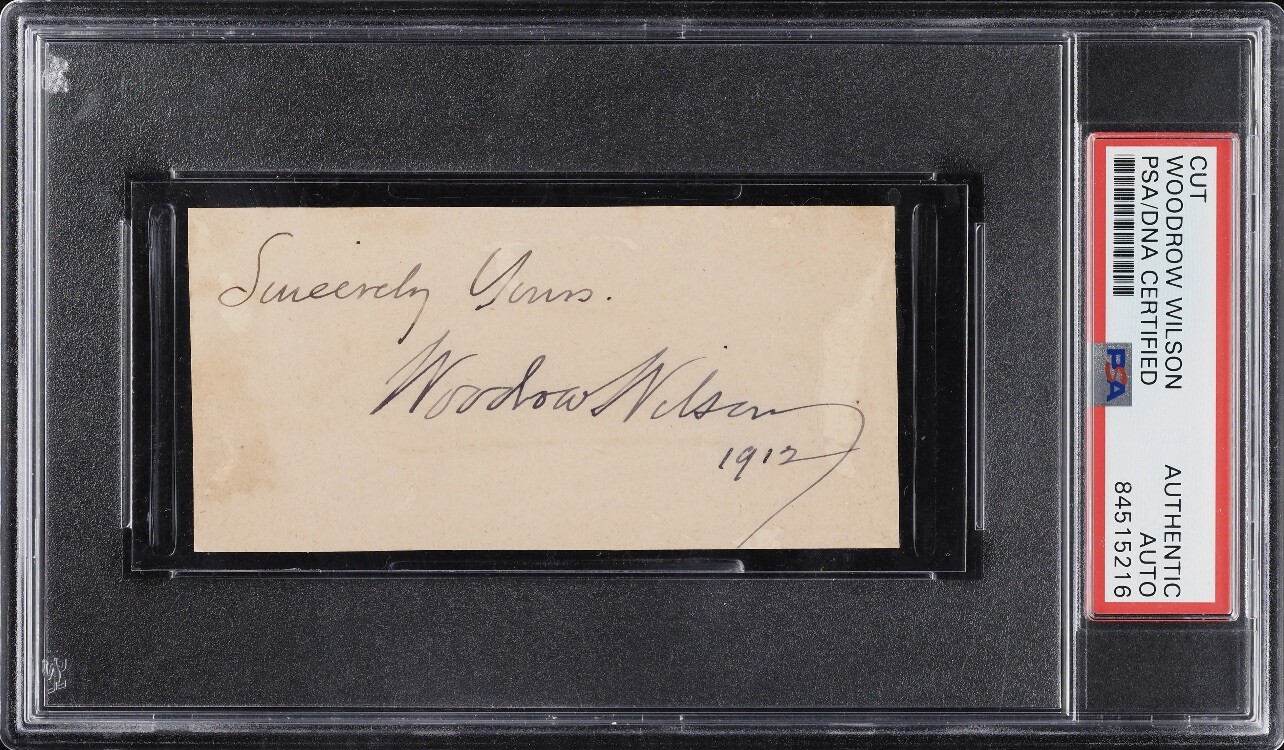 Sincerely Yours.
Woodrow Wilson
1912
CUT
WOODROW WILSON
PSA/DNA CERTIFIED
PSA
AUTHENTIC
AUTO
84515216